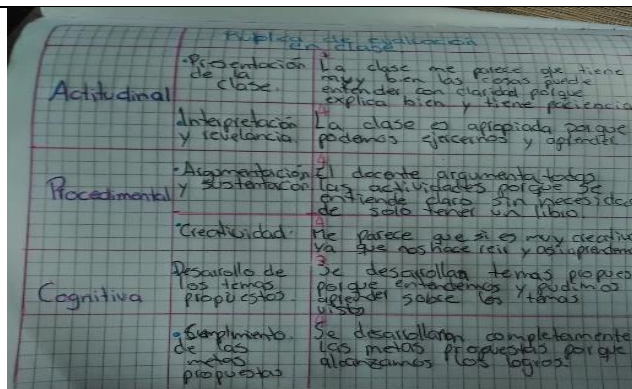 Rublica de evaluación
en clase
Actitudinal
• Presentación
de la
clase.
3
La clase me parece que tiene
muy bien las cosas puede
entender con claridad porque
explica bien y tiene paciencia
Interpretación
y revelancia.
4
La clase es apropiada porque
podemos ejercernos y aprender
Procedimental
• Argumentación
y sustentación
4
El docente argumenta todas
las actividades porque se
entiende claro sin necesidad
de solo tener un libro.
• Creatividad.
4
Me parece que si es muy creativa
ya que nos hace reir y asi aprendemos
Cognitiva
Desarrollo de
los temas
propuestos.
3
Se desarrollan temas
porque entendemos y pudimos
aprender sobre los temas
visto
• Cumplimiento
de las
metas
propuestas
4
Se desarrollaron completamente
las metas propuestas porque
alcanzamos los logros.